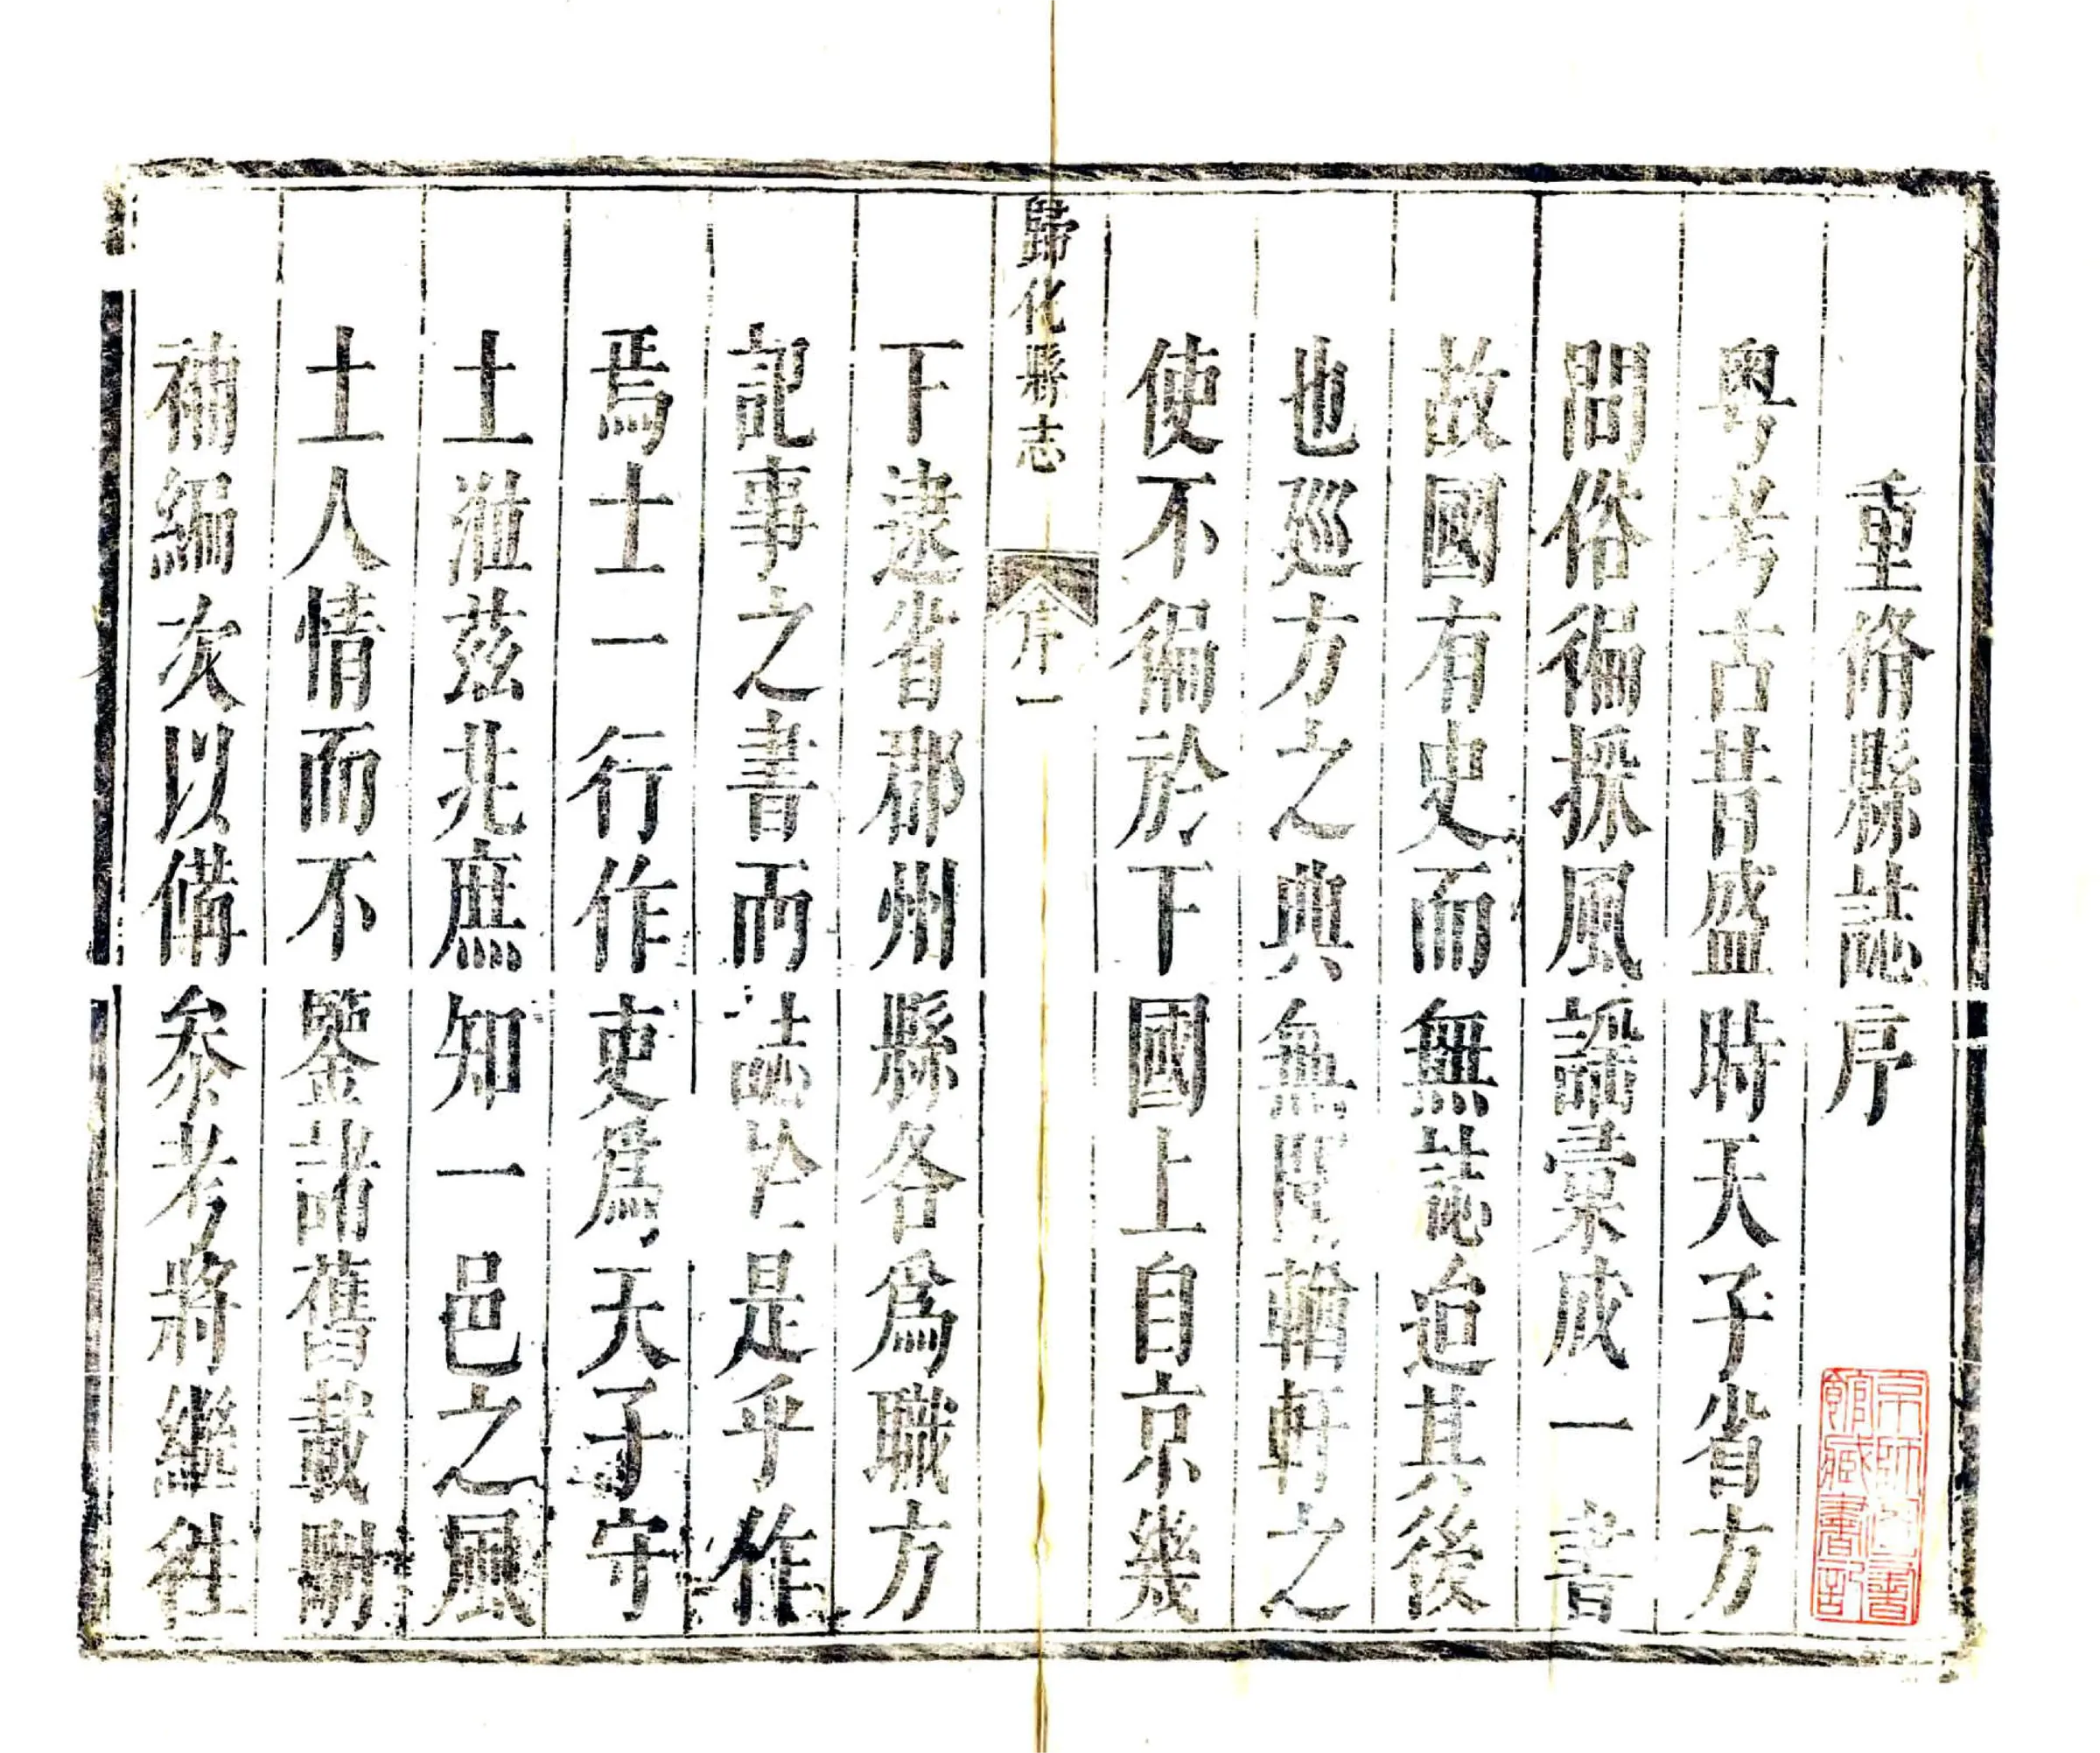 重脩縣誌序
京師圖書
館藏書記
粤考古昔盛時天子省方
問俗徧採風謡彙成一書
故國有史而無誌迨其後
也廵方之典無聞輶軒之
使不徧於下國上自京幾
歸化縣志 序 一
下逮省郡州縣各爲職方
記事之書而誌於是乎作
焉士一行作吏爲天子守
土涖茲兆庶知一邑之風
土人情而不鑒諸舊載
補編次以備叅考將繼徃